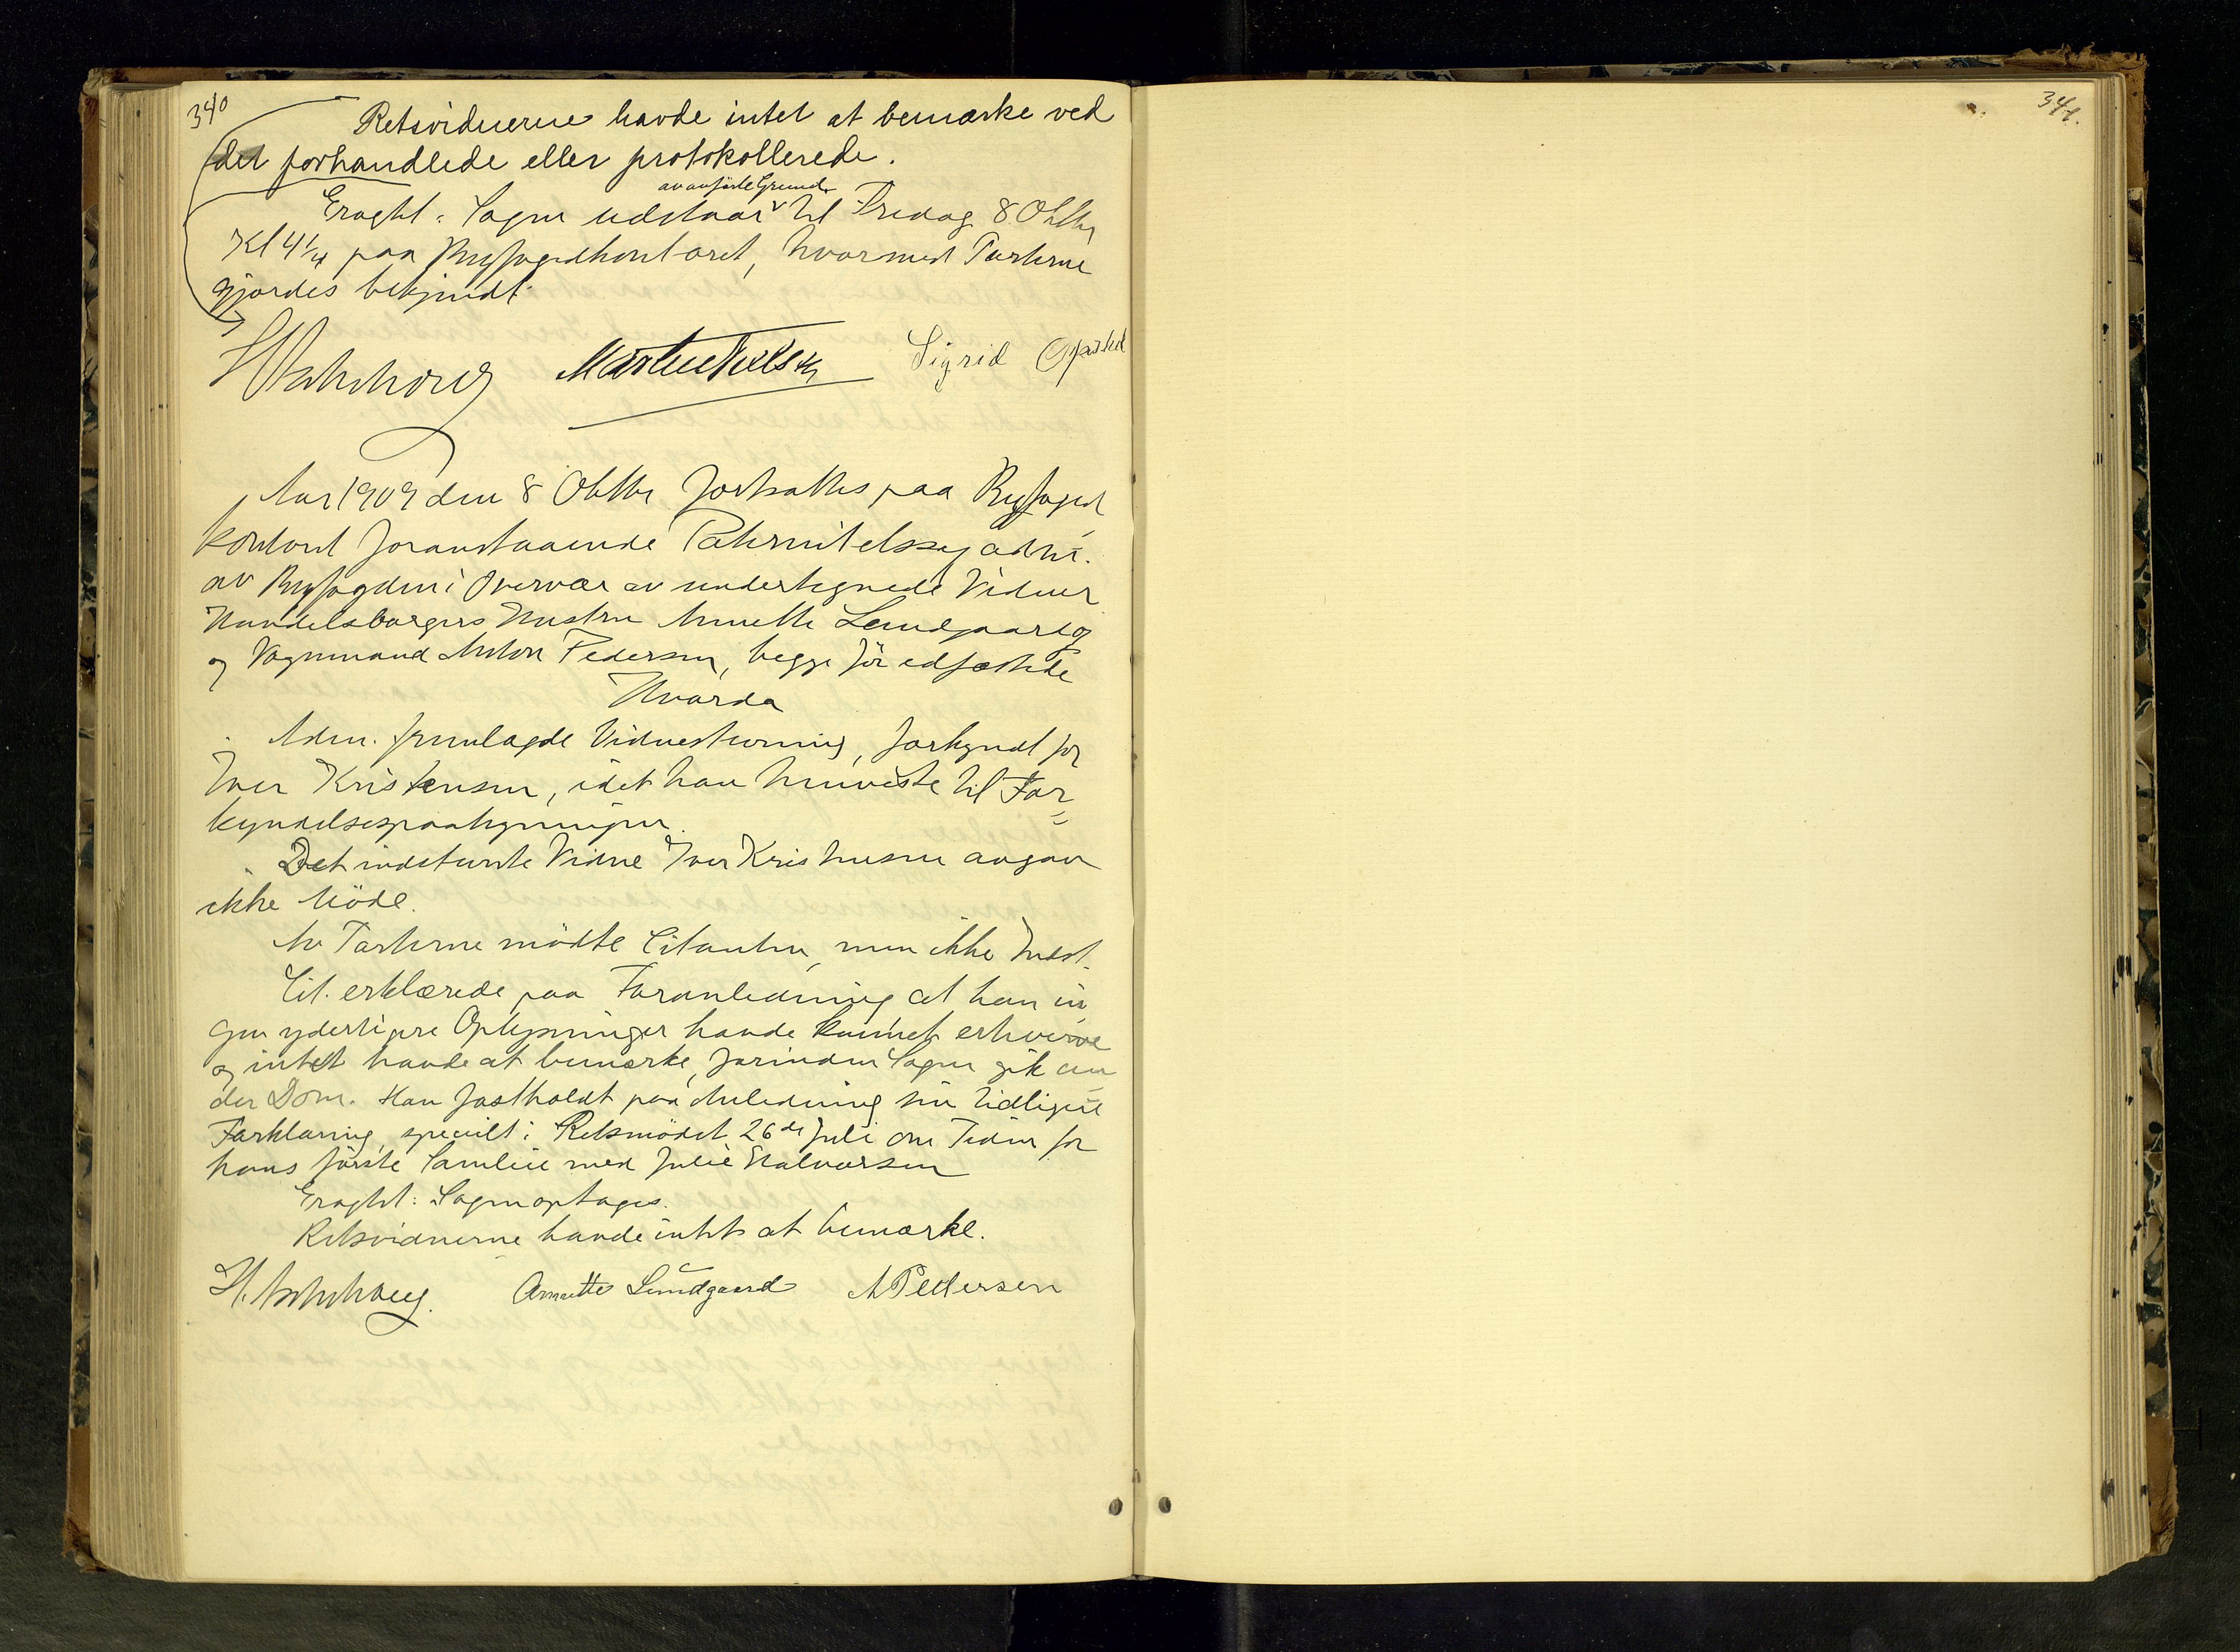 340
Retsvidnerne havde intet at bemærke ved
det forhandlede eller protokollerede.
av anförte Grund
Eragtet: Sagen udstaar til Fredag 8 Oktbr
Kl 4 1/4 paa Byfogedkontoret, hvormed Parterne
gjordes bekjendt.
Sigrid
Aar 1909 den 8 Oktbr fortsattes paa Byfoged
kontoret foranstaaende Paternitetssag adm.
av Byfogden i Overvær av undertegnede Vidner
Handelsborgers Hustru Annette Lundgaard
og Vognmand Anton Pedersen, begge för edfæstede
Hvorda
Adm. fremlagde Vidnestevning, forkyndt for
Iver Kristensen, idet han henviste til For
kyndelsespaategningen.
Det indstevnte Vidne Iver Kristensen avgav
ikke Möde.
Av Parterne mödte Citanten, men ikke Indst.
Cit. erklærede paa Foranledning at han in
gen yderligere Oplysninger havde kunnet erhverve
og intet havde at bemærke, forinden Sagen gik un
der Dom. Han fastholdt paa Anledning sin tidligere
Forklaring, specielt i Retsmödet 26de Juli om Tiden for
hans förste Samleie med Julie Halvorsen
Eragtet: Sagen optages.
Retsvidnerne havde intet at bemærke.
Annette Lundgaard A Pedersen
341.